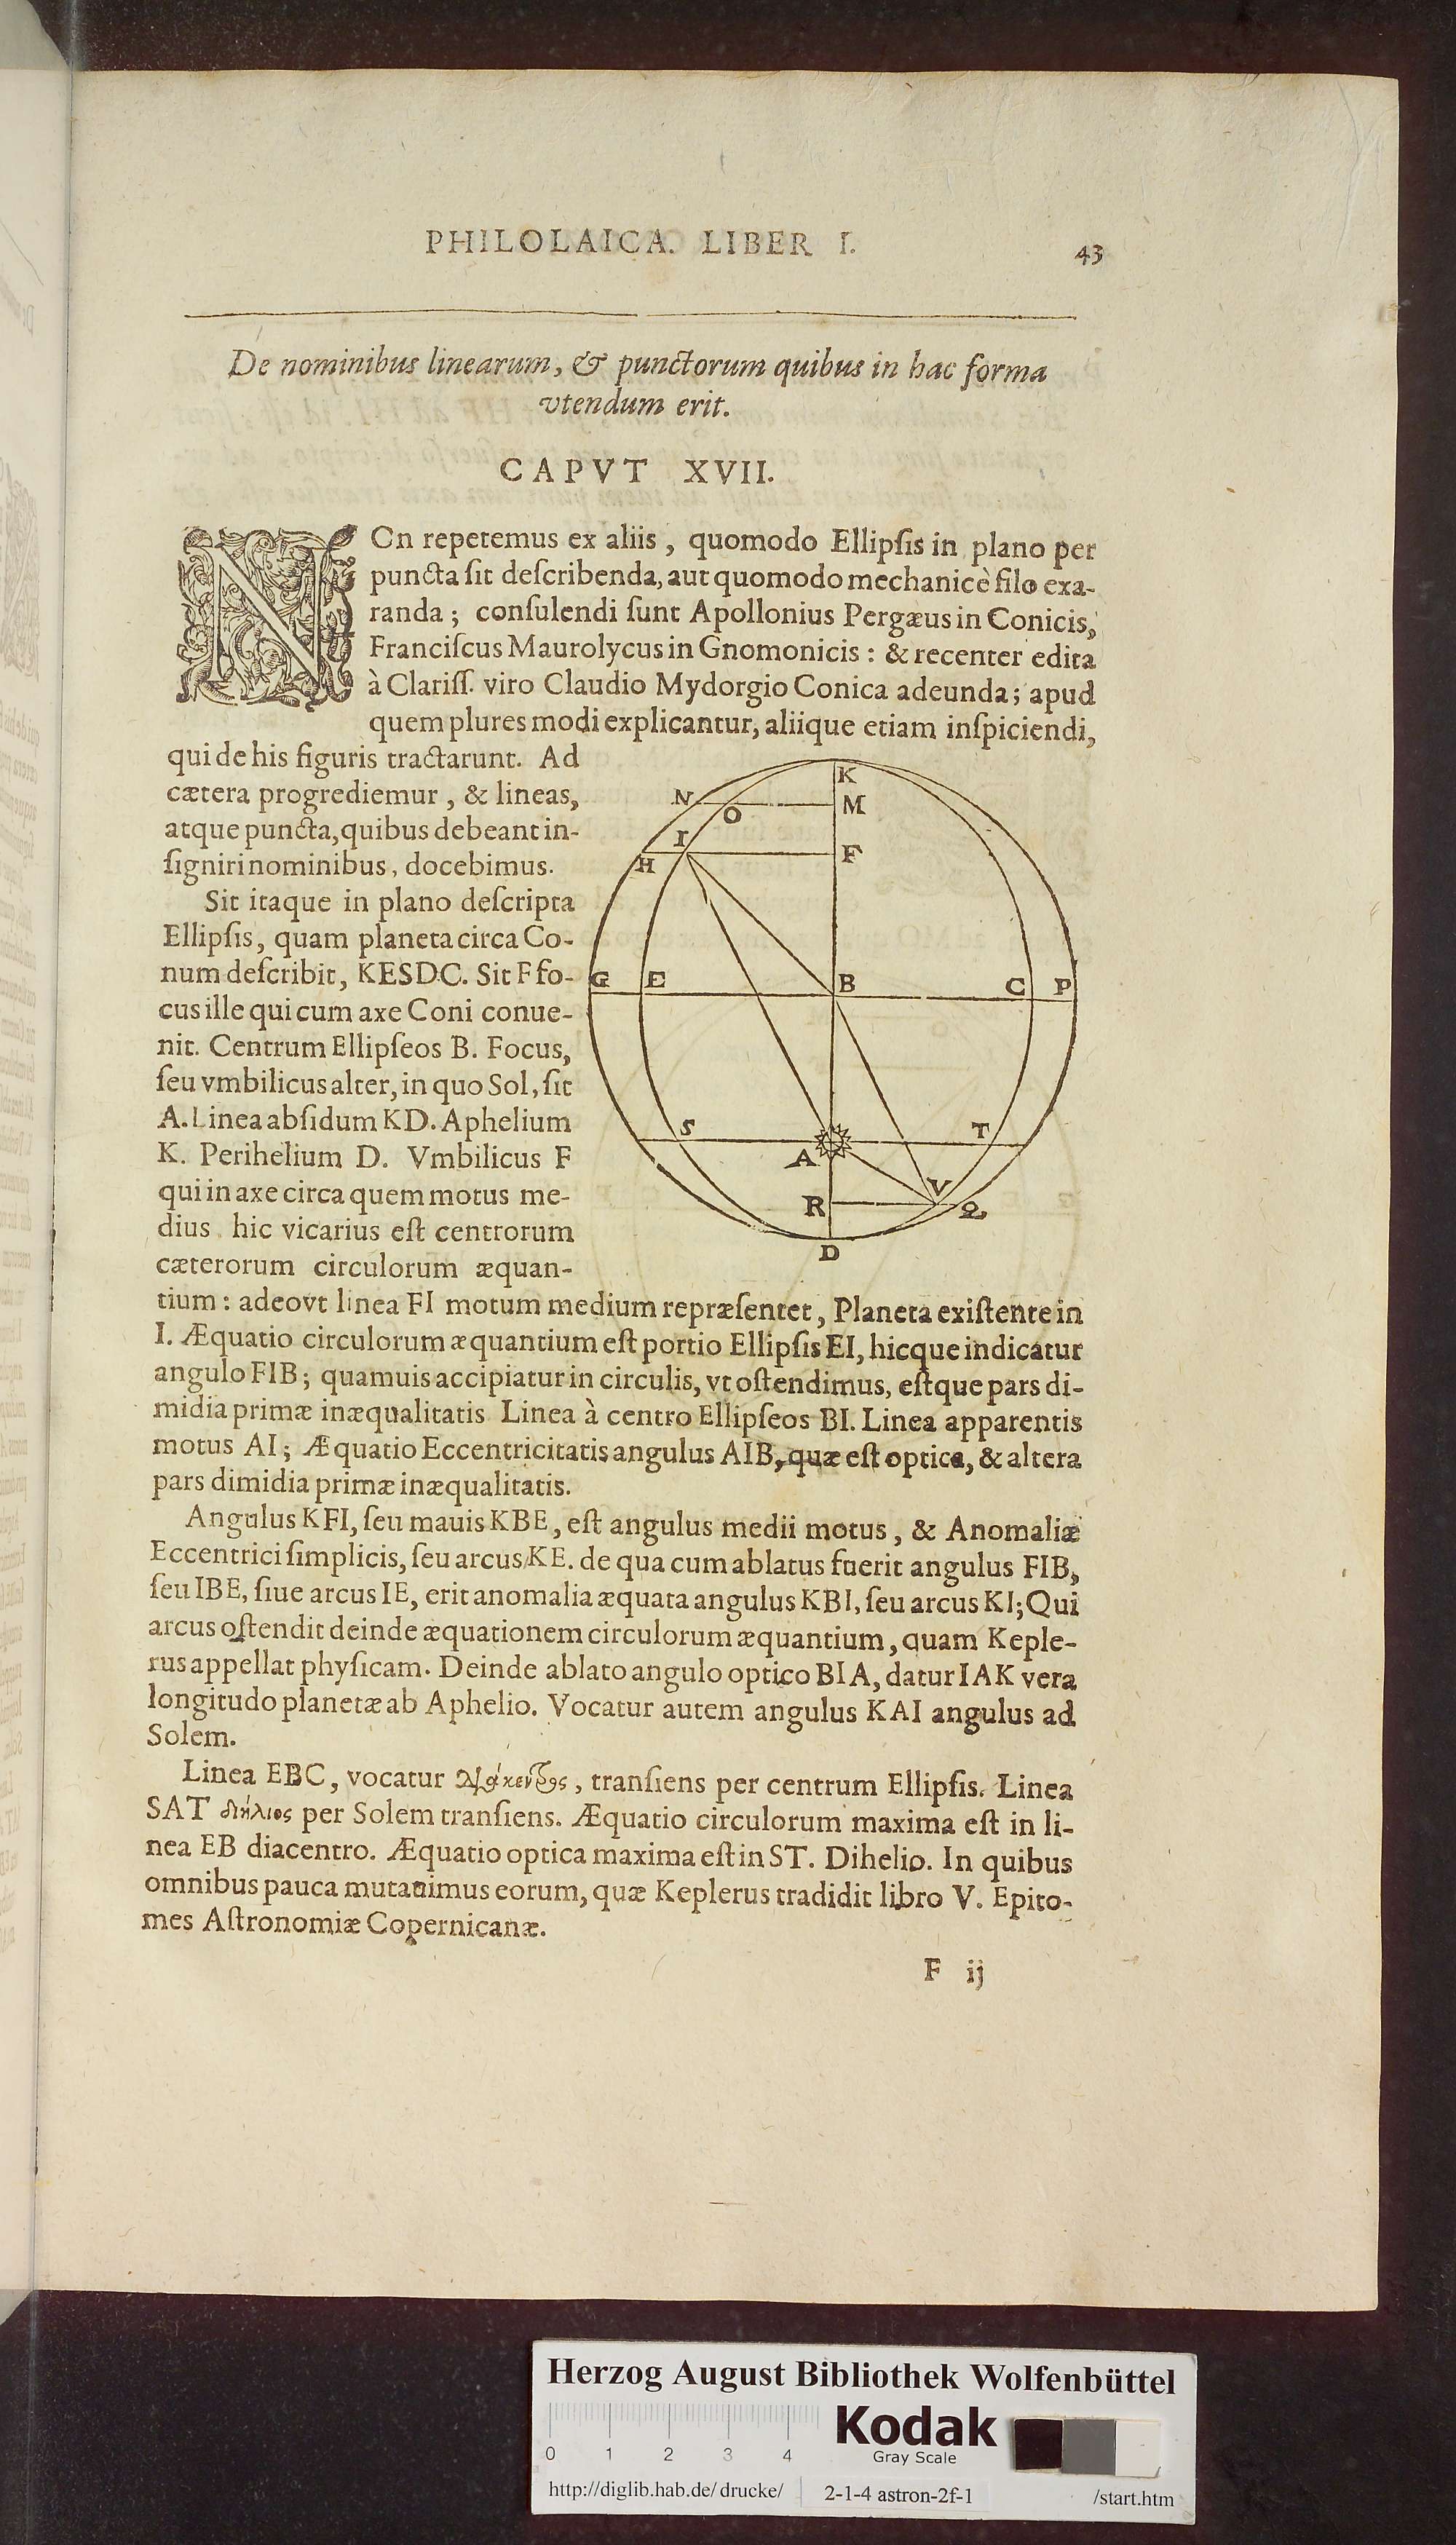 PHILOLAICA. LIBER I.
43
De nominibus linearum, & punctorum quibus in hac forma
vtendum erit.
CAPVT XVII.
NOn repetemus ex aliis, quomodo Ellipſis in plano per
puncta ſit deſcribenda, aut quomodo mechanicè filo exa-
randa; conſulendi ſunt Apollonius Pergæus in Conicis,
Franciſcus Maurolycus in Gnomonicis: & recenter edita
à Clariſſ. viro Claudio Mydorgio Conica adeunda; apud
quem plures modi explicantur, aliique etiam inſpiciendi,
qui de his figuris tractarunt. Ad
cætera progrediemur, & lineas,
atque puncta, quibus debeant in-
ſigniri nominibus, docebimus.
Sit itaque in plano deſcripta
Ellipſis, quam planeta circa Co-
num deſcribit, KESDC. Sit F fo-
cus ille qui cum axe Coni conue-
nit. Centrum Ellipſeos B. Focus,
ſeu vmbilicus alter, in quo Sol, ſit
A. Linea abſidum KD. Aphelium
K. Perihelium D. Vmbilicus F
qui in axe circa quem motus me-
dius hic vicarius eſt centrorum
cæterorum circulorum æquan-
tium: adeovt linea FI motum medium repræſentet, Planeta exiſtente in
I. Æquatio circulorum æquantium eſt portio Ellipſis EI, hicque indicatur
angulo FIB; quamuis accipiatur in circulis, vt oſtendimus, eſtque pars di-
midia primæ inæqualitatis Linea à centro Ellipſeos BI. Linea apparentis
motus AI; Æquatio Eccentricitatis angulus AIB, quæ eſt optica, & altera
pars dimidia primæ inæqualitatis.
Angulus KFI, ſeu mauis KBE, eſt angulus medii motus, & Anomaliæ
Eccentrici ſimplicis, ſeu arcus KE. de qua cum ablatus fuerit angulus FIB,
ſeu IBE, ſiue arcus IE, erit anomalia æquata angulus KBI, ſeu arcus KI; Qui
arcus oſtendit deinde æquationem circulorum æquantium, quam Keple-
rus appellat phyſicam. Deinde ablato angulo optico BIA, datur IAK vera
longitudo planetæ ab Aphelio. Vocatur autem angulus KAI angulus ad
Solem.
Linea EBC, vocatur , tranſiens per centrum Ellipſis. Linea
SAT διήλιος per Solem tranſiens. Æquatio circulorum maxima eſt in li-
nea EB diacentro. Æquatio optica maxima eſt in ST. Dihelio. In quibus
omnibus pauca mutauimus eorum, quæ Keplerus tradidit libro V. Epito-
mes Aſtronomiæ Copernicanæ.
F ij
K
N
O
M
I
H
F
G
E
B
C
P
S
T
A
V
R
Q
D
Herzog August Bibliothek Wolfenbüttel
Kodak
Gray Scale
0 1 2 3 4
http://diglib.hab.de/drucke/ 2-1-4 astron-2f-1 /start.htm